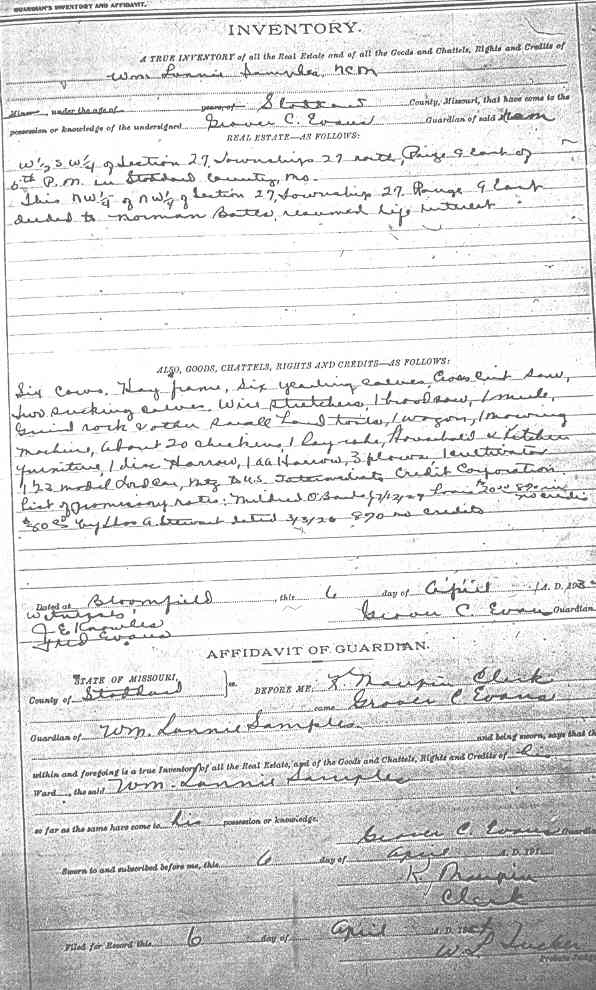 GUARDIAN'S INVENTORY AND AFFIDAVIT.
INVENTORY.
A TRUE INVENTORY of all the Real Estate and of all the Goods and Chattels, Rights and Credits of
Wm Lonnie Samples, N.C.M
Minor , under the age of years, of Stoddard County, Missouri, that have come to the
possession or knowledge of the undersigned Grover C. Evans Guardian of said
REAL ESTATE—AS FOLLOWS:
W½ SW¼ of Section 27, Township 27 north, Range 9 East of
5th P.M. in Stoddard County, Mo.
This NW¼ of NW¼ of Section 27, Township 27, Range 9 East
deeded to Norman Bates, life interest
ALSO, GOODS, CHATTELS, RIGHTS AND CREDITS—AS FOLLOWS:
Six cows, Hay frame, six yearling calves, Cross cut saw,
two sucking calves, Wire stretchers, 1 brood sow, 1 mule,
Grind rock & other small hand tools, 1 wagon, 1 mowing
machine, about 20 chickens, 1 Hay rake, Household & Kitchen
furniture, 1 disc Harrow, 1 AA Harrow, 3 plows 1 cultivator
1 23 model, mtg to U.S. Intermediate Credit Corporation.
List of promissory notes: Mildred 8% int no credits
$80.00 by A. Stewart dated 3/3/26 8% no credits
Dated at Bloomfield , this 6 day of April A. D. 193
Witnesses:
Grover C. Evans Guardian.
J E Knowles
Fred Evans
AFFIDAVIT OF GUARDIAN.
STATE OF MISSOURI,
County of Stoddard ss. BEFORE ME, K. Maupin Clerk
came Grover C Evans
Guardian of Wm. Lonnie Samples and being sworn, says that the
within and foregoing is a true Inventory of all the Real Estate, and of the Goods and Chattels, Rights and Credits of his
Ward , the said Wm. Lonnie Samples
so far as the same have come to his possession or knowledge.
Grover C. Evans Guardian
Sworn to and subscribed before me, this 6 day of April A. D. 19
K, Maupin
Clerk
Filed for Record this 6 day of April A. D. 19
W L Tucker
Probate Judge